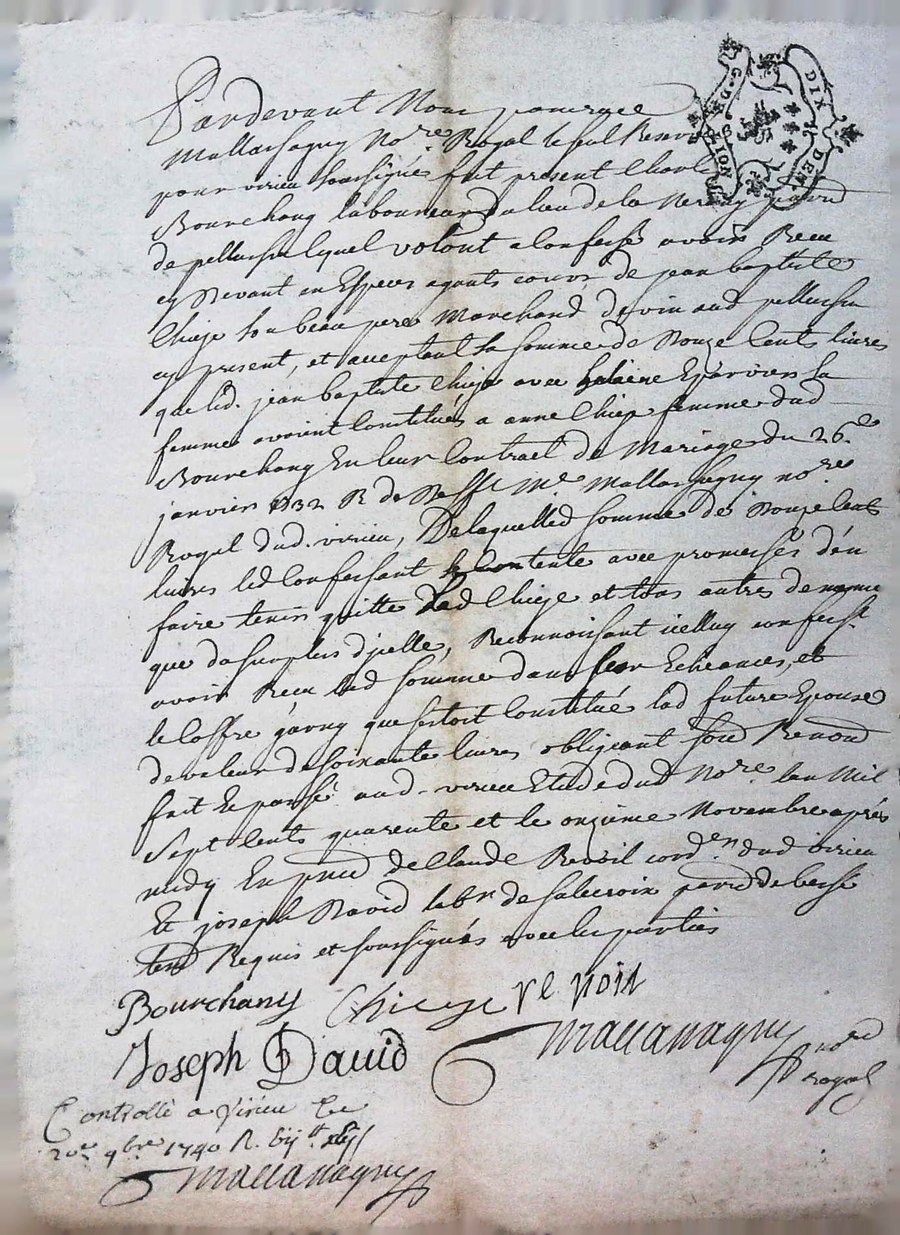 Pardevant Nous
No.re Royal
pour virieu soussigné fut present Charle
Bourchany laboureur du lieu de la
de pellussin lequel volont a confessé avoir Receu
cy devant en Especes ayants cours de jean baptiste
Chieze son beau pere Marchand de vin aud pellussin
cy present, et acceptant la somme de Douze Cents livres
que led. jean baptiste Chieze avec helaine Epervier sa
femme avoient Constitués a anne Chieze femme dud
Bourchany En leur Contract de Mariage du 26.e
janvier 1732 no.re
Royal dud. virieu, De laquelled somme de Douze Cents
livres led Confessant se Contente avec promesses d'en
faire tenir quitte led Chieze et tous autres
que du surplus d'jcelle, Reconnoissant icelluy confess.t
avoir Receu lad somme dans Echeances, et
le Coffre garny que s'estoit Constitué lad future Epouse
de valeur de soixante livres obligeant
fait Et passé aud. virieu Etude dud No.re lan Mil
Sept Cents quarente et le onzieme Novembre après
midy En pnce de Claude cord.er dud virieu
Et joseph David lab.r de
Requis et soussignés avec les parties
Bourchany Chieze
Joseph David
no.re
royal
Controllé a Virieu Le
20.e 9bre 1740 R.
G. DE LION
DIX DEN